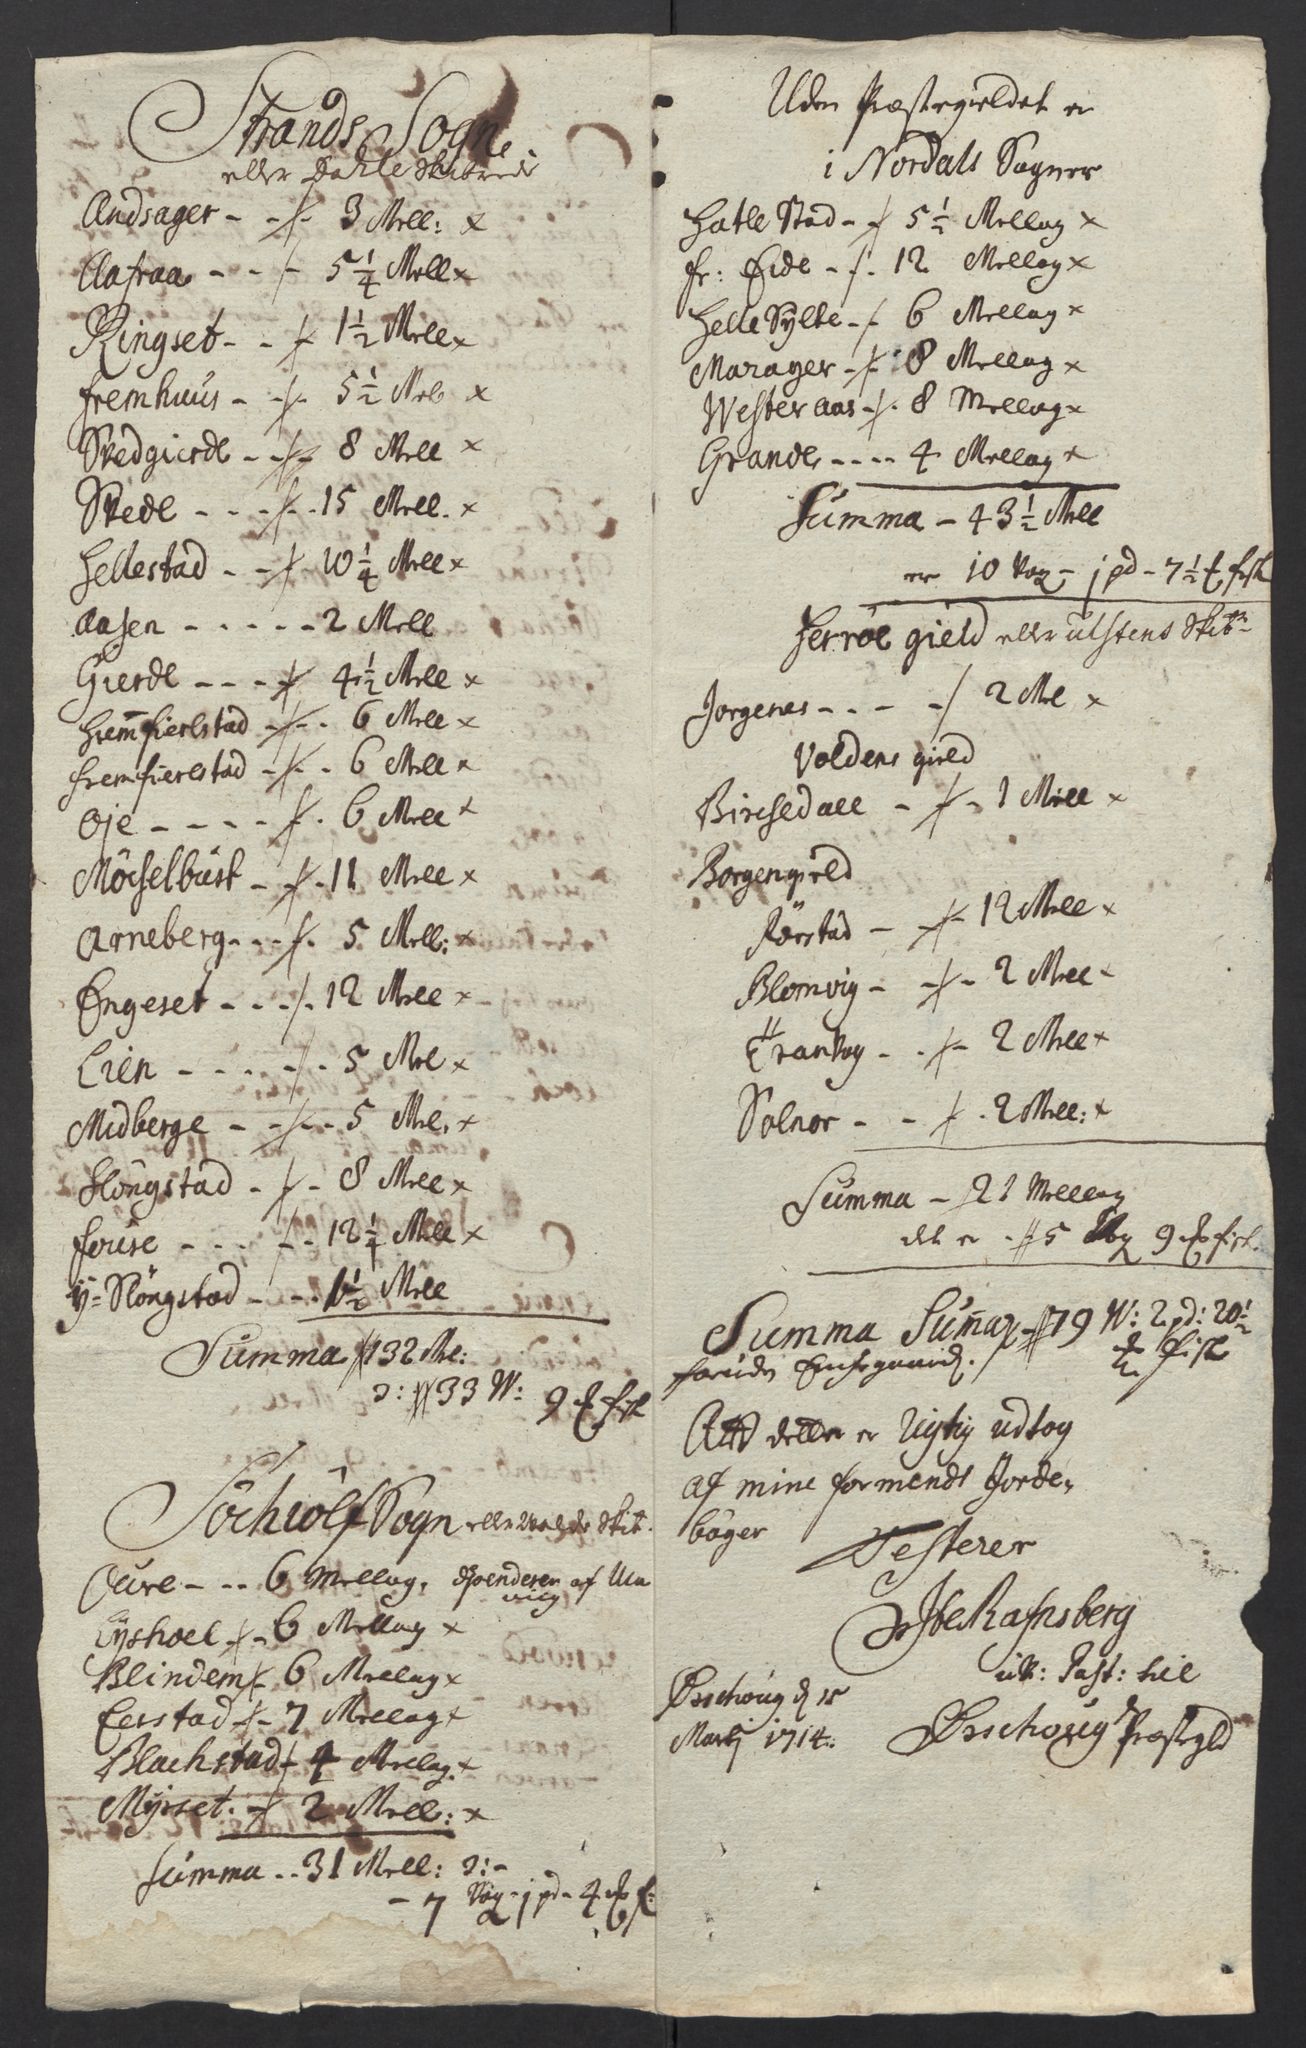 Strands Sogn
eller Dahle Skibrede
Andsager - - 3 Mell: x
Aafraa - - - 5 1/4 Mell x
Ringset - - 1 1/2 Mell x
fremhuus - - 5 1/2 Mel x
Skedgierde - - 8 Mell x
Skede - - - - 15 Mell. x
Hellestad - - 10 1/4 Mell x
Aasen - - - - - 2 Mell
Gierde - - - - 4 1/2 Mell x
Hremfierlstad - - 6 Mell x
fremfierlstad - - 6 Mell x
Oje - - - - - 6 Mell x
Möchelbust - - 11 Mell x
Arneberg - - - 5 Mell: x
Engeset - - - 12 Mell x
Lien - - - - - 5 Mel x
Midberge - - - 5 Mel. x
Slöngstad - - 8 Mell x
fouse - - - - 12 1/4 Mell x
ÿ= Slöngstad - - - 1 1/2 Mell
Summa 132 Me:
ɔ: 33 W: 9 ℔ fisk
Söchwölf Sogn eller Skib.
Oure - - - 6 Mellag, af
Lyshoel - 6 Mellag x
Blindem - 6 Mellag x
Eerstad - 7 Mellag x
Blachstad - 4 Mellag x
Myrset. - 2 Mell: x
Summa - - 31 Mell: ɔ: -
- 7 Vog - j pd - 4 ℔ f:
Uden Præstegieldet er
i Nordals Sogner
Hatle Stad - - 5 1/2 Mellag x
fr: Eide - - 12 Mellag x
Helle Sylte - 6 Mellag x
Marager - - 8 Mellag x
Westeraas - - 8 Mellag x
Grande - - - - 4 Mellag x
Summa - 43 1/2 Mell
er 10 Vog - j pd - 7 1/2 ℔ fisk
Herröe gield eller Ulstens Skib:
Jorgenes - - - - 2 Mel x
Voldens gield
Birchedall - - 1 Mell x
Borgengield
Rörstad - - 12 Mell x
Blomvig - - - 2 Mell x
- - - 2 Mell x
Solnor - - - 2 Mell: x
Summa - 21 Mellag
det er - 5 Vog 9 ℔ fisk.
Summa Summar 79 W: 2 pd: 20 1/2
foruden ℔ fisk
Att dette er rigtig udtog
af mine formends Jorde,
bøger
Testerer
Ravnsberg
Past: til
Ørschoug d 15
Martj 1714. Ørschoug Præstgld